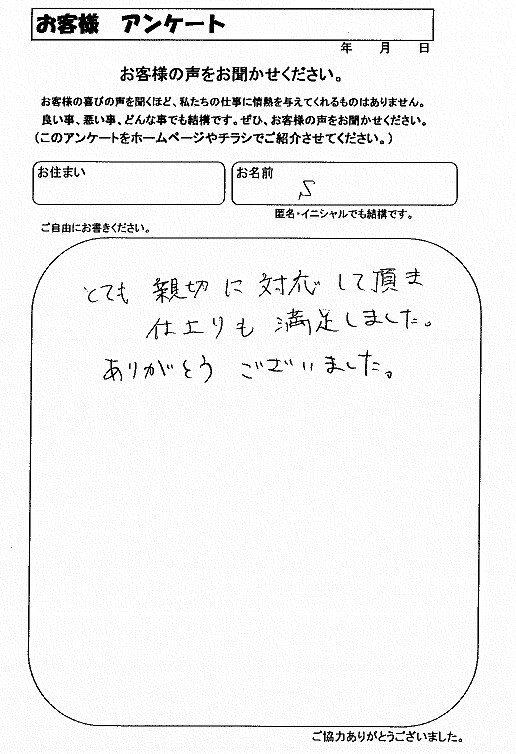 お客様　アンケート
年　月　日
お客様の声をお聞かせください。
お客様の喜びの声を聞くほど、私たちの仕事に情熱を与えてくれるものはありません。
良い事、悪い事、どんな事でも結構です。ぜひ、お客様の声をお聞かせください。
（このアンケートをホームページやチラシでご紹介させてください。）
お住まい
お名前
S
匿名・イニシャルでも結構です。
ご自由にお書きください。
とても 親切に 対応して頂ま
仕上りも 満足しました。
ありがとう ございました。
ご協力ありがとうございました。